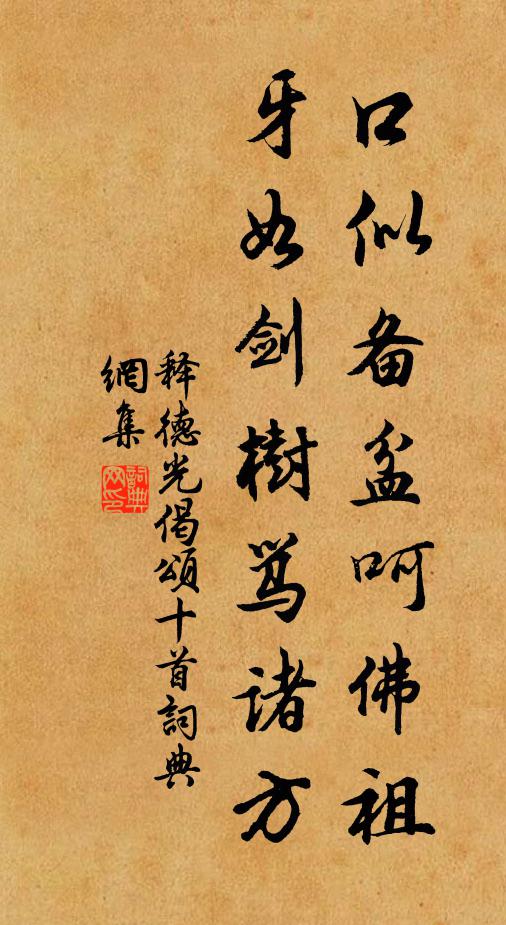 口似备盆呵佛祖
牙如剑樹骂诸方
释德光偈頌十首詞典
網集
詞典
网印